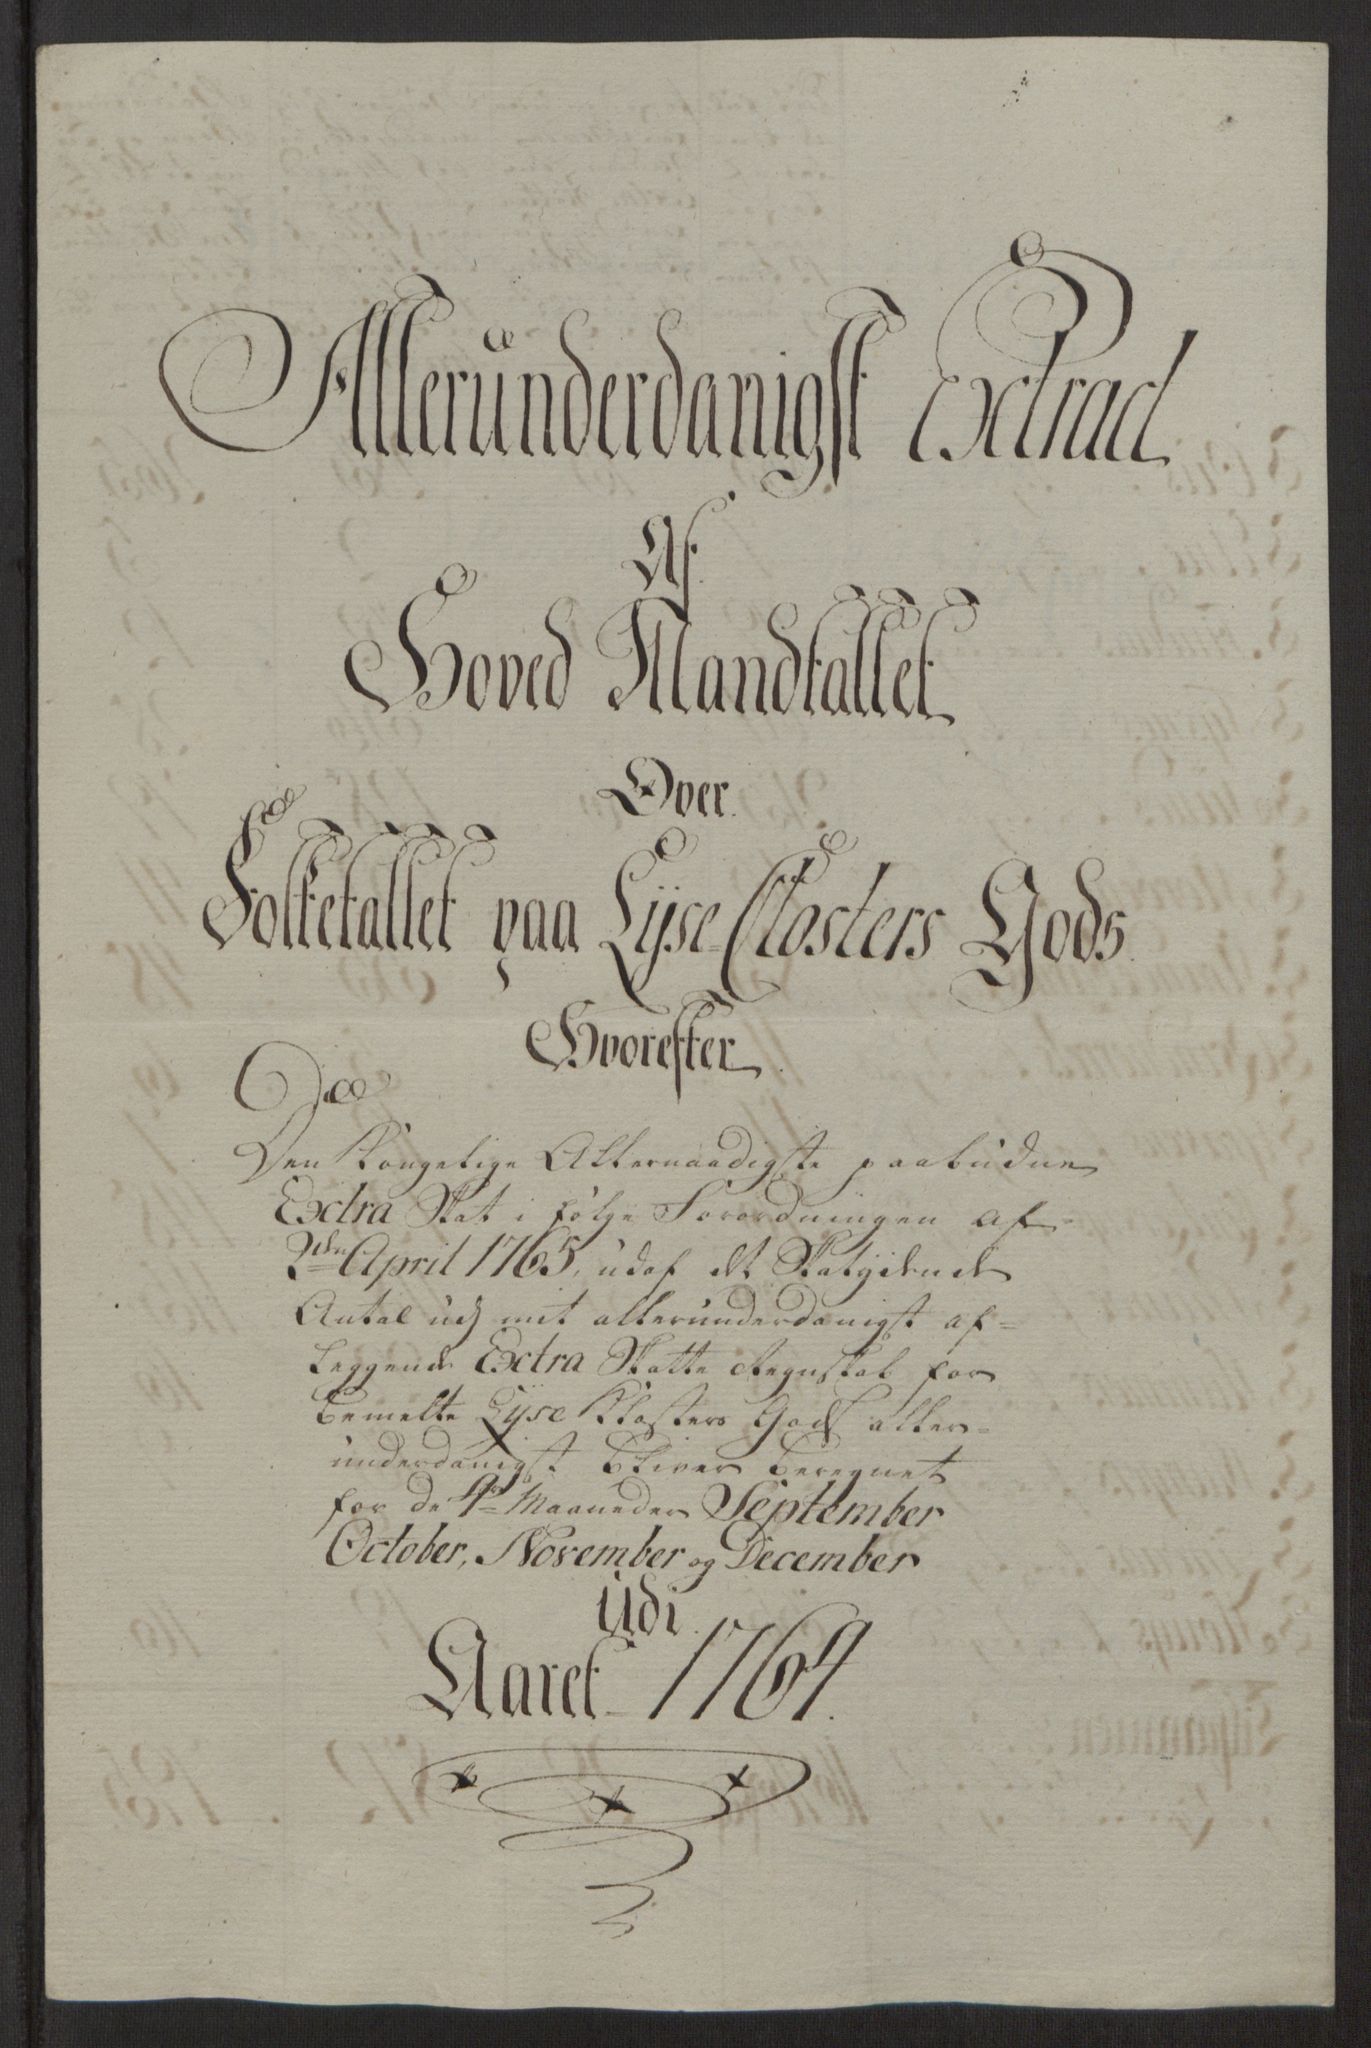 Allerunderdanigst Extract
Af.
Hoved Mandtallet
Over.
Folketallet paa Lyse-Closters Gods.
Hvorefter
Den Kongelige Allernaadigste paabudne
Extra Skat i følge Forordningen af
2den April 1765, udaf det Skatydende
Antal udj mit allerunderdanigst af=
leggende Extra Skatte Regnskab for
bemelte Lyse Klosters Gods aller=
underdanigst bliver beregnet
for de 4re Maaneder September
October, November og December
Udi.
Aaret 1764.